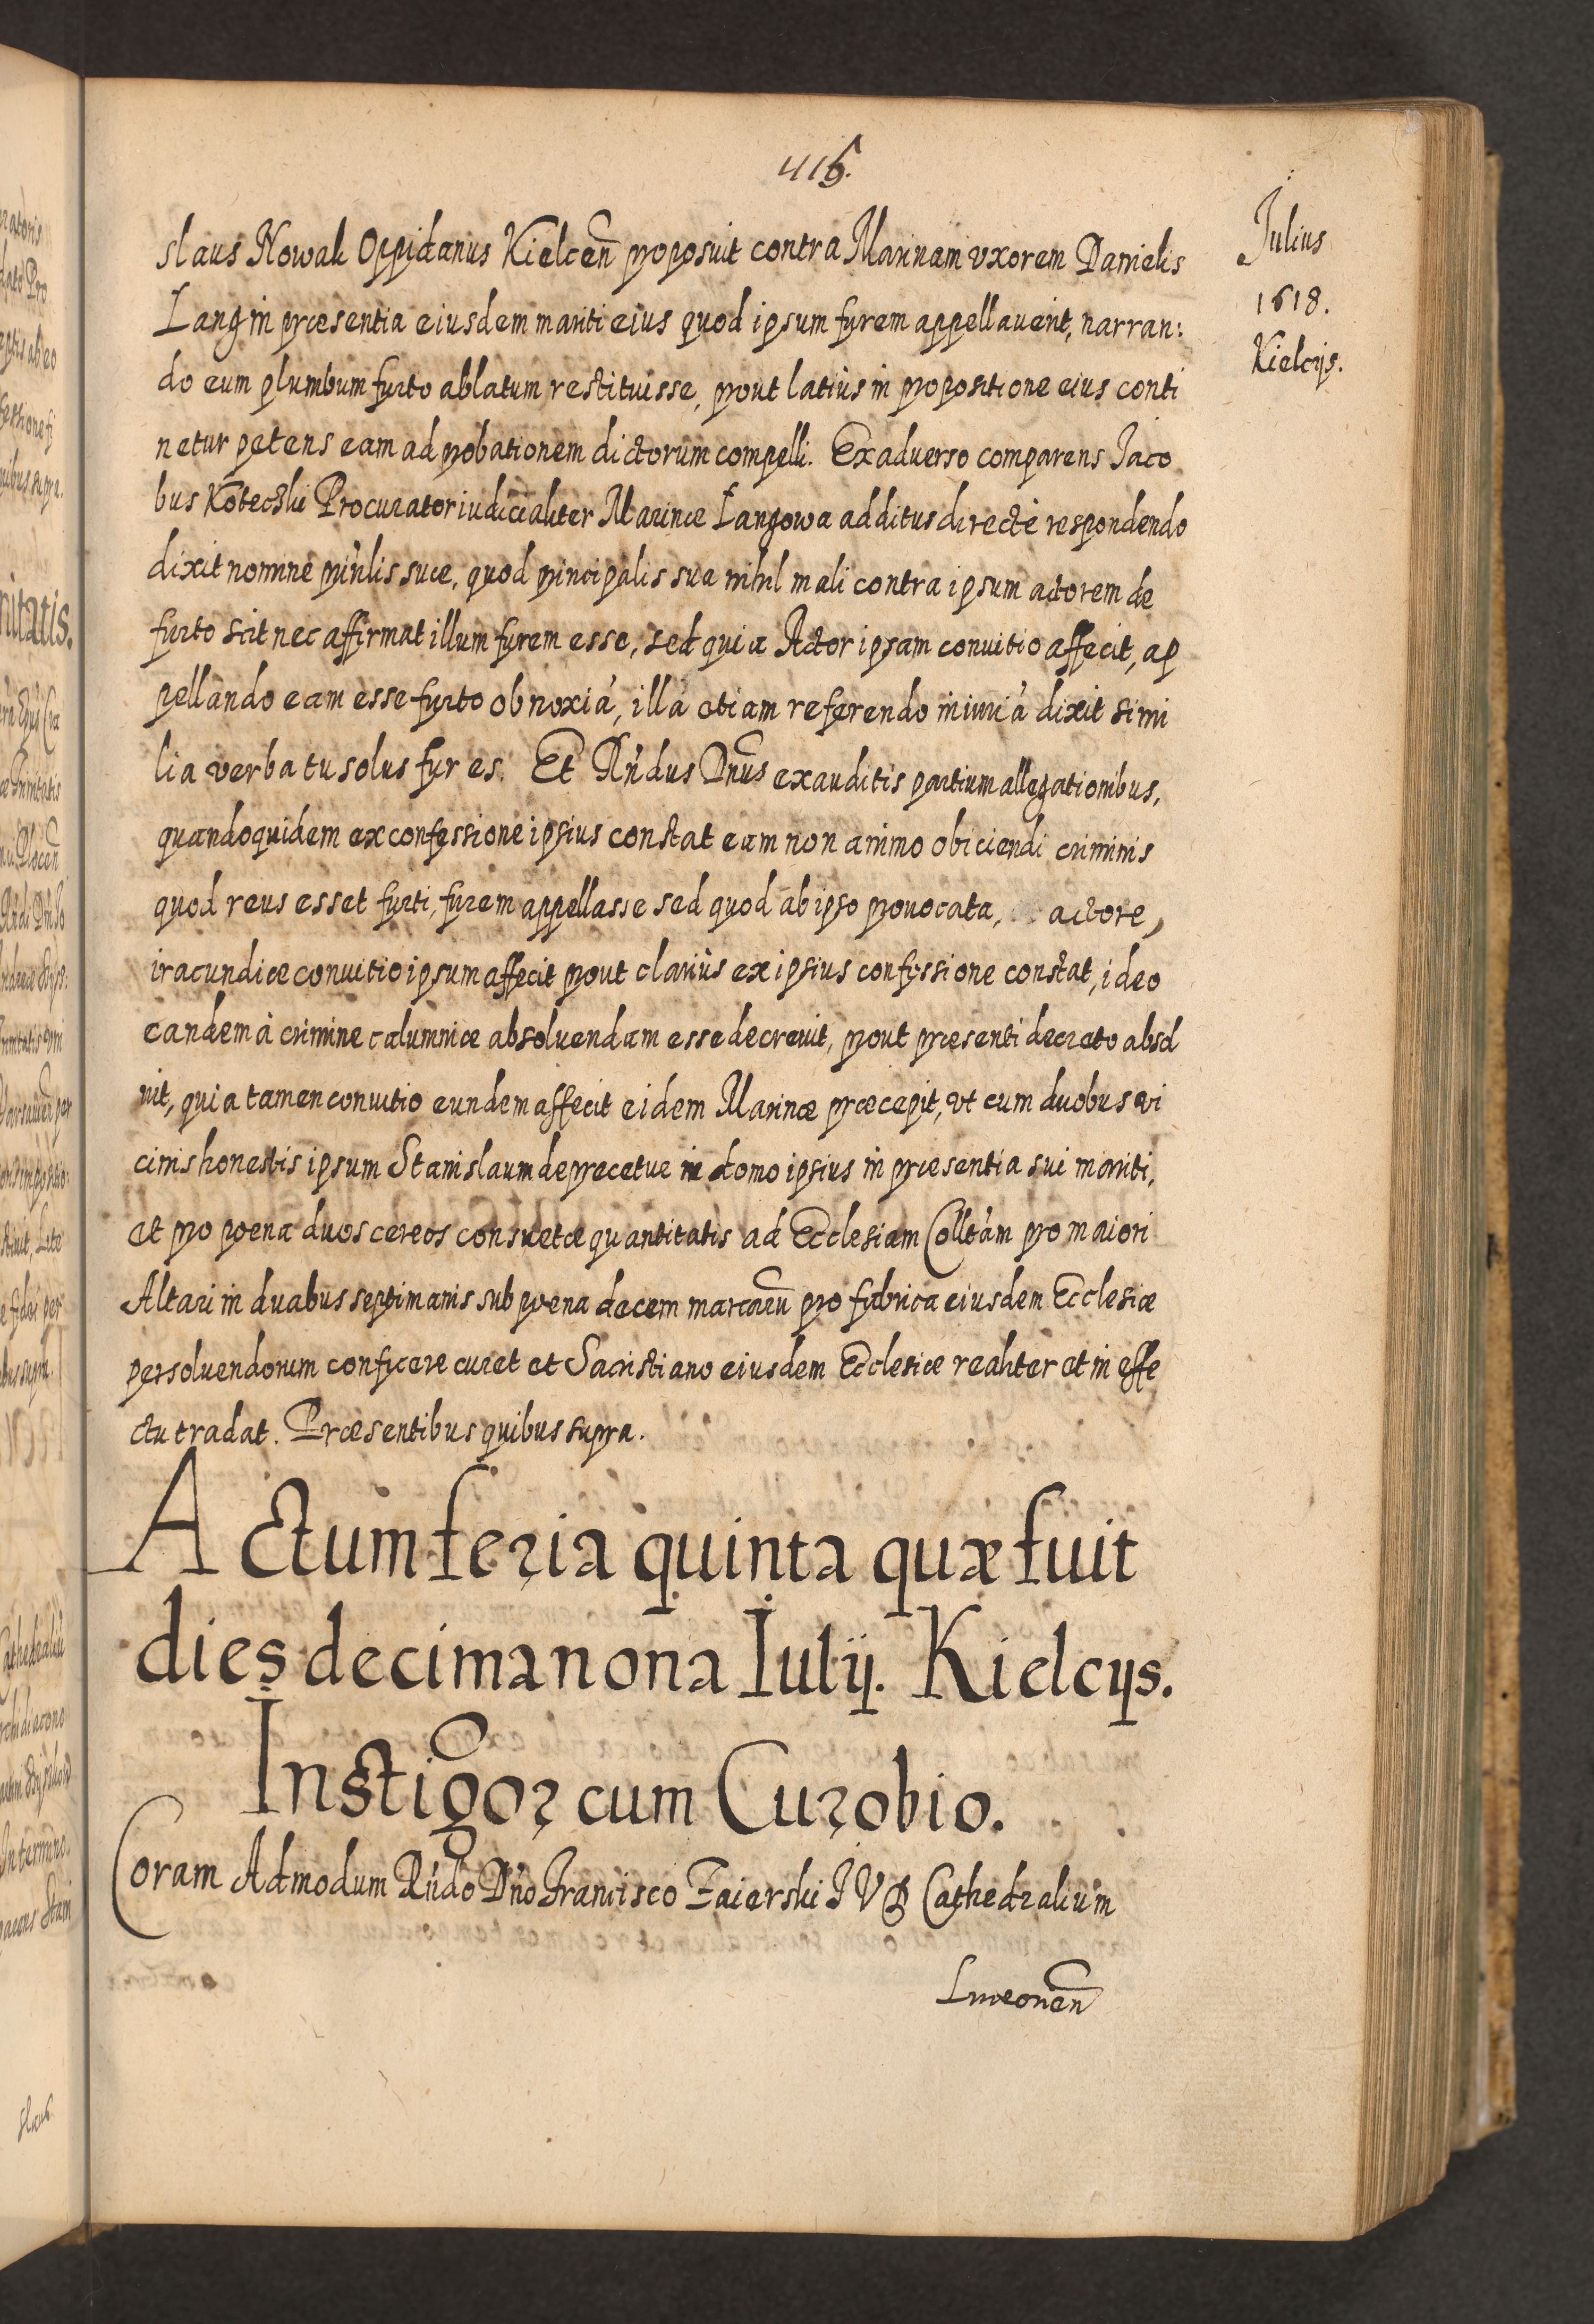 415.
Julius
1618.
Kielcijs.
slaus Nowak Oppidanus Kielcen̄ proposuit contra Marinam vxorem Danielis
Lang in præsentia eiusdem mariti eius quod ipsum furem appellauerit, narran:
do eum plumbum furto ablatum restituisse, prout latiùs in propositione eius conti
netur petens eam ad probationem dictorum compelli. Ex aduerso comparens Jaco
bus Koteczki Procurator iudicialiter Marinæ Langowa additus directè respondendo
dixit nomine pn̄lis suæ, quod principalis sua nihil mali contra ipsum actorem de
furto scit nec affirmat illum furem esse, sed quia Actor ipsam conuitio affecit, ap
pellando eam esse furto obnoxiā, illā etiam referendo iniuriā dixit simi
lia verba tu solus fur es. Et Rn̄dus Dn̄us exauditis partium allegationibus,
quandoquidem ex confessione ipsius constat eam non animo obiciendi criminis
quod reus esset furti, furem appellasse sed quod ab ipso prouocata, actore,
iracundiæ conuitio ipsum affecit prout clariùs ex ipsius confessione constat, ideo
eandem à crimine calumniæ absoluendam esse decreuit, prout præsenti decreto absol
uit, quia tamen conuitio eundem affecit eidem Marinæ præcepit, vt cum duobus vi
cinis honestis ipsum Stanislaum deprecetur in domo ipsius in præsentia sui mariti,
et pro poena duos cereos consuetæ quantitatis ad Ecclesiam Colltām pro maiori
Altari in duabus septimanis sub poena decem marcarū pro fabrica eiusdem Ecclesiæ
persoluendorum conficere curet et Sacristiano eiusdem Ecclesiæ realiter et in effe
ctu tradat. Præsentibus quibus supra.
Actum feria quinta quæ fuit
dies decimanona Iulij. Kielcijs.
Instigor̄ cum Curobio.
Coram Admodum Rn̄do Dn̄o Francisco Zaierski J V D Cathedralium